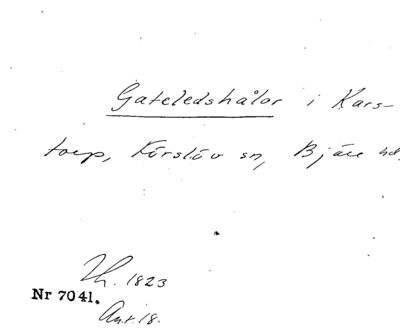 Gateledshålor i Kars-
torp, Förslöv sn, Bjäre hd.
Th. 1823
Nr 7041.
Ant. 18.